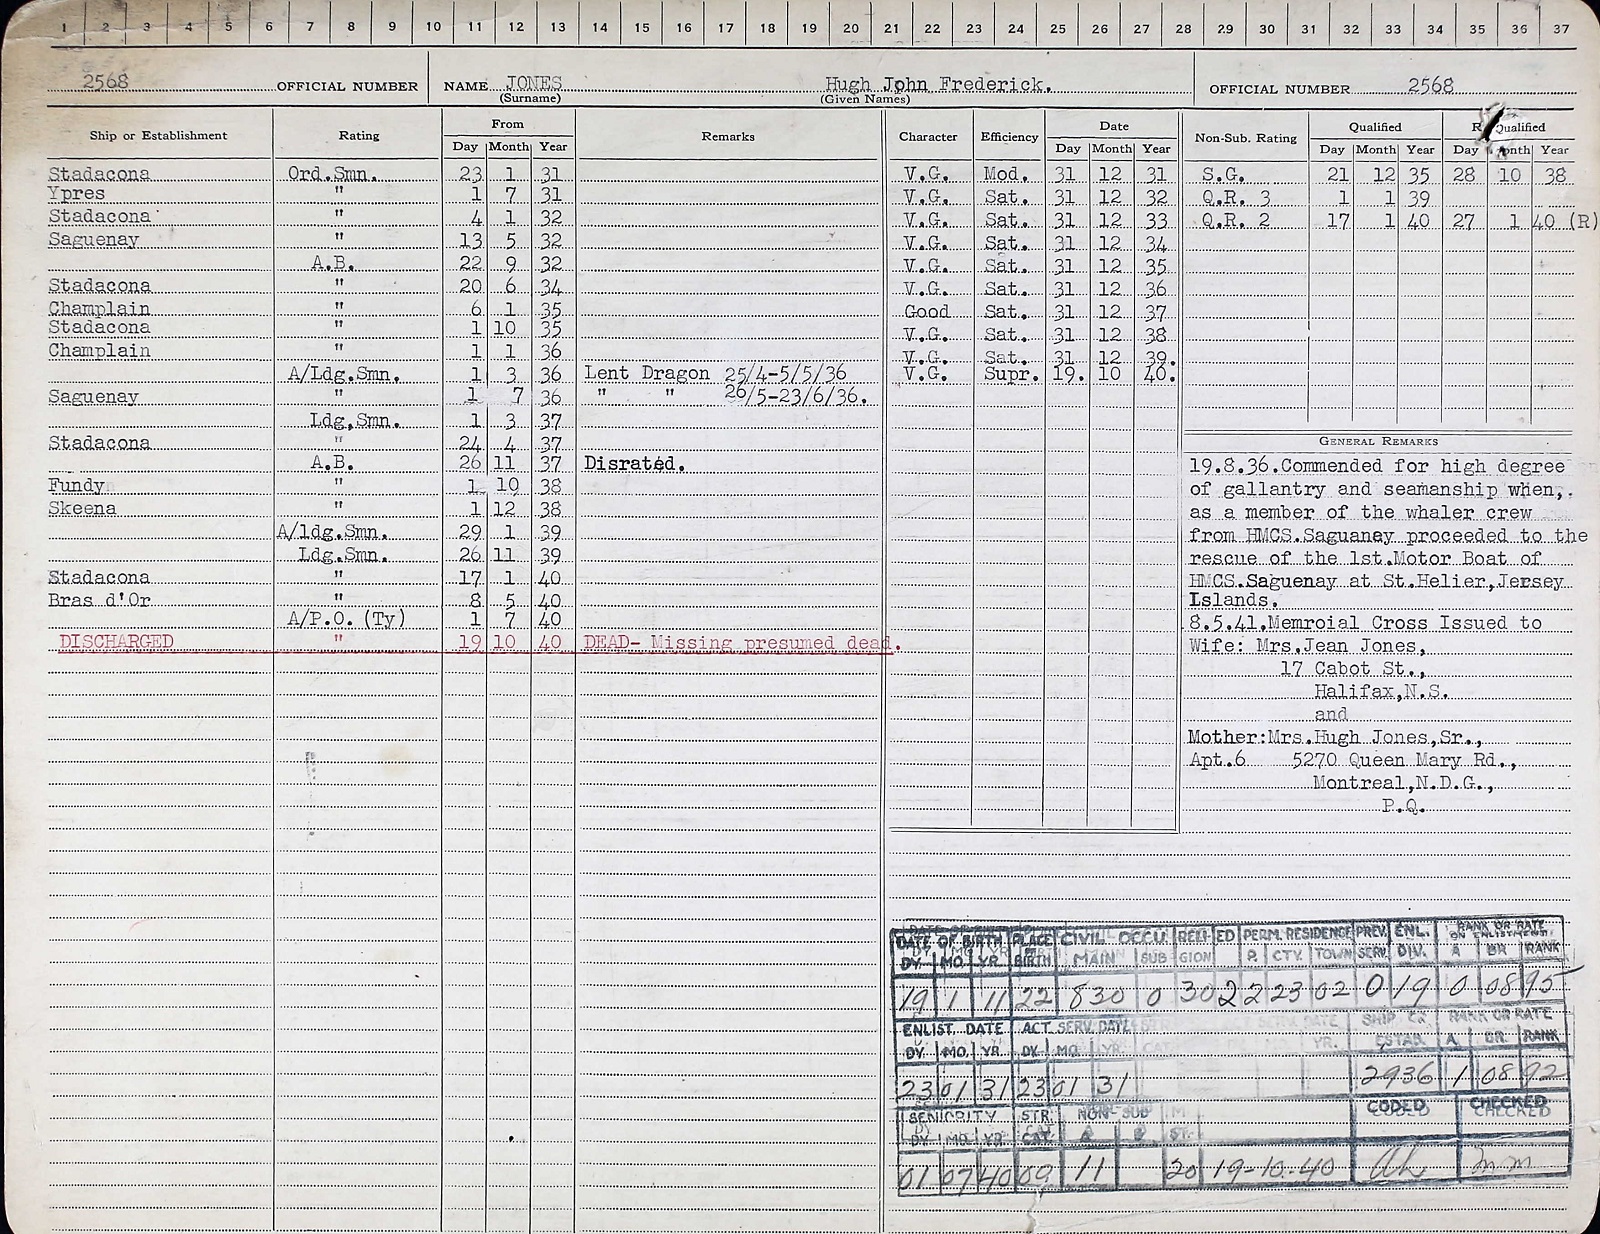 1 2 3 4 5 6 7 8 9 10 11 12 13 14 15 16 17 18 19 20 21 22 23 24 25 26 27 28 29 30 31 32 33 34 35 36 37
2568 OFFICIAL NUMBER NAME JONES Hugh John Frederick. OFFICIAL NUMBER 2568
(Surname) (Given Names)
Ship or Establishment Rating From Remarks
Day Month Year
Stadacona Ord.Smn. 23 1 31
Ypres " 1 7 31
Stadacona " 4 1 32
Saguenay " 13 5 32
A.B. 22 9 32
Stadacona " 20 6 34
Champlain " 6 1 35
Stadacona " 1 10 35
Champlain " 1 1 36
A/Ldg.Smn. 1 3 36 Lent Dragon 25/4-5/5/36
Saguenay " 1 7 36 " " 26/5-23/6/36.
Ldg.Smn. 1 3 37
Stadacona " 24 4 37
A.B. 26 11 37 Disrated.
Fundy " 1 10 38
Skeena " 1 12 38
A/ldg.Smn. 29 1 39
Ldg.Smn. 26 11 39
Stadacona " 17 1 40
Bras d'Or " 8 5 40
A/P.O.(Ty) 1 7 40
DISCHARGED " 19 10 40 DEAD- Missing presumed dead.
Character Efficiency Date
Day Month Year
V.G. Mod. 31 12 31
V.G. Sat. 31 12 32
V.G. Sat. 31 12 33
V.G. Sat. 31 12 34
V.G. Sat. 31 12 35
V.G. Sat. 31 12 36
Good Sat. 31 12 37
V.G. Sat. 31 12 38
V.G. Sat. 31 12 39.
V.G. Supr. 19. 10 40.
Non-Sub. Rating Qualified Qualified
Day Month Year Day Month Year
S.G. 21 12 35 28 10 38
Q.R. 3 1 1 39
Q.R. 2 17 1 40 27 1 40 (R)
GENERAL REMARKS
19.8.36.Commended for high degree
of gallantry and seamanship when,
as a member of the whaler crew
from HMCS.Saguaney proceeded to the
rescue of the 1st.Motor Boat of
HMCS.Saguenay at St.Helier,Jersey
Islands.
8.5.41.Memroial Cross Issued to
Wife: Mrs.Jean Jones,
17 Cabot St.,
Halifax,N.S.
and
Mother:Mrs.Hugh Jones,Sr.,
Apt.6 5270 Queen Mary Rd.,
Montreal,N.D.G.,
P.Q.
DATE OF BIRTH PLACE CIVIL OCCU. RELI- ED PERM. RESIDENCE PREV. ENL. RANK OR RATE ON ENLISTMENT
DY. MO. YR. BIRTH MAIN SUB GION P. CTY. TOWN SERV. DIV. A BR RANK
19 1 11 22 830 0 30 2 2 23 02 0 19 0 08 95
ENLIST. DATE ACT. SERV. DATE SHIP OR ESTAB. RANK OR RATE
DY. MO. YR. DY. MO. YR. YR. A. BR. RANK
23 01 31 23 01 31 2936 1 08 92
SENIORITY STR. NON-SUB CODED CHECKED
DY. MO. YR. CAT. A B
01 07 40 09 11 20 19-10-40